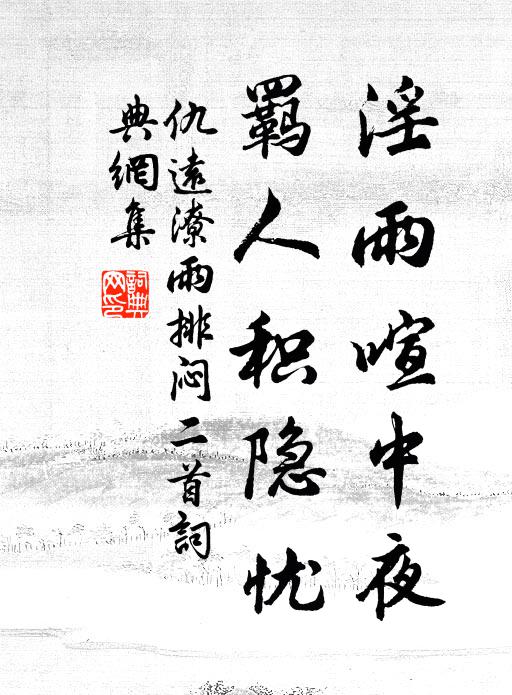 淫雨喧中夜
羈人积隐忧
仇遠潦雨排闷二首詞
典網集
詞典
网印